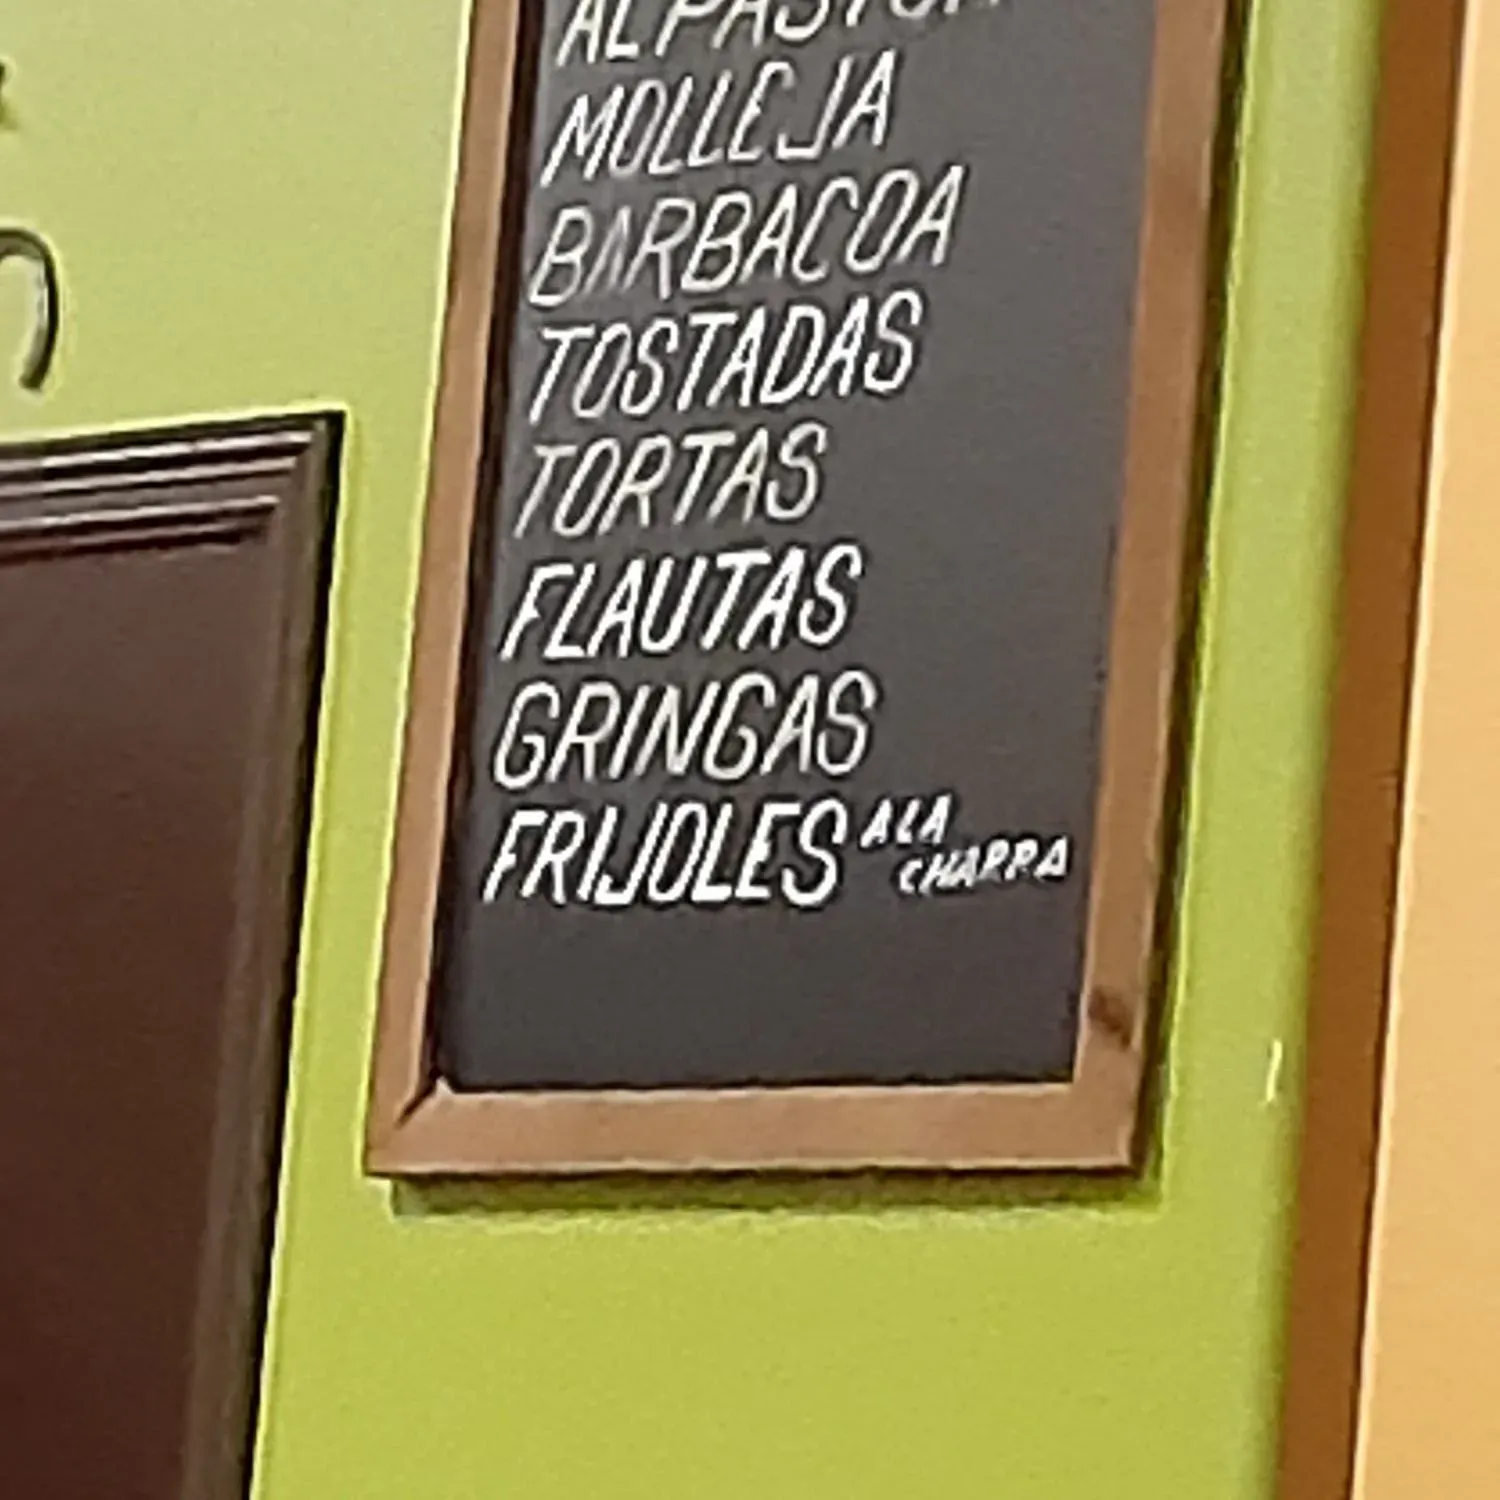 AL PASTOR
MOLLEJA
BARBACOA
TOSTADAS
TORTAS
FLAUTAS
GRINGAS
FRIJOLES A LA
CHARRA